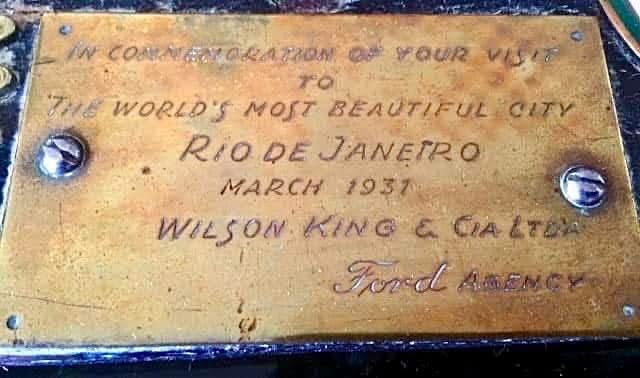 IN COMMEMORATION OF YOUR VISIT
TO
THE WORLD'S MOST BEAUTIFUL CITY
RIO DE JANEIRO
MARCH 1931
WILSON KING & CIA LTDA
Ford AGENCY